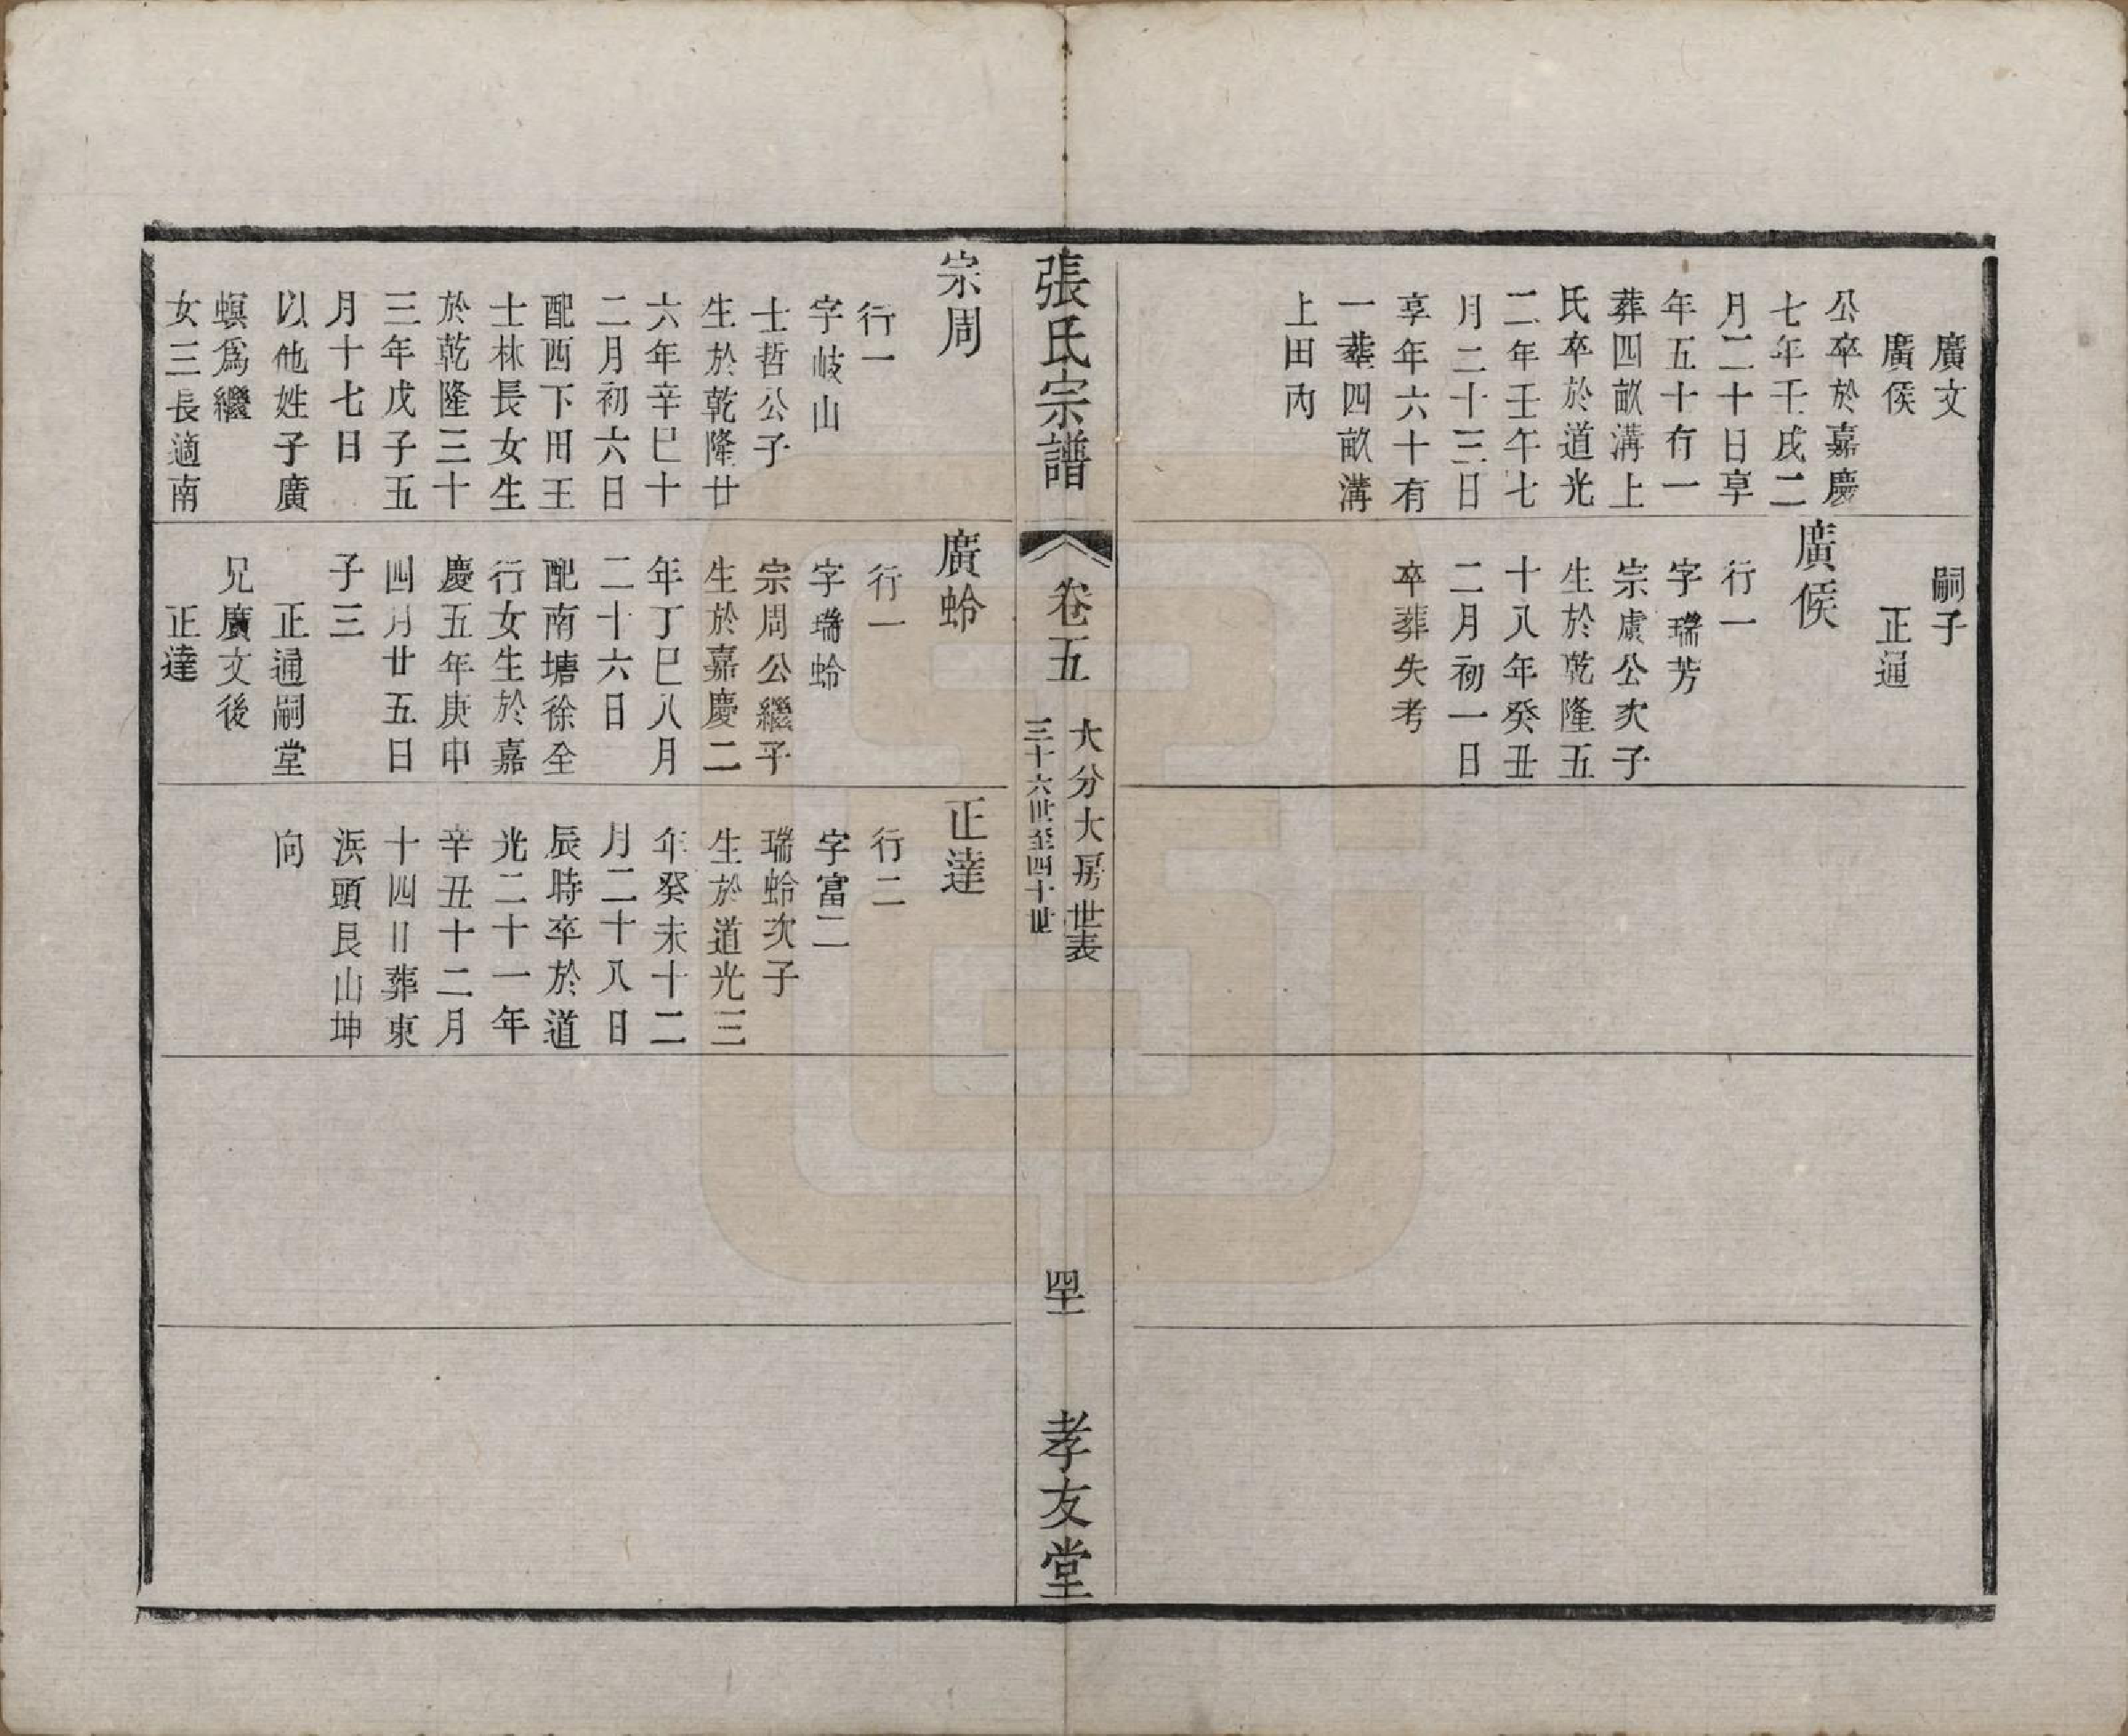 廣文
廣侯
公卒於嘉慶
七年壬戌二
月二十日享
年五十有一
葬四畝溝上
氏卒於道光
二年壬午七
月二十三日
享年六十有
一葬四畝溝
上田內
嗣子
正通
廣侯
行一
字瑞芳
宗虞公次子
生於乾隆五
十八年癸丑
二月初一日
卒葬失考
張氏宗譜
卷五
大分大房世表
三十六世至四十世
四十一
孝友堂
宗周
行一
字岐山
士哲公子
生於乾隆廿
六年辛巳十
二月初六日
配西下田王
士林長女生
於乾隆三十
三年戊子五
月十七日
以他姓子廣
螟爲繼
女三長適南
廣蛉
行一
字瑞蛉
宗周公繼子
生於嘉慶二
年丁巳八月
二十六日
配南塘徐全
行女生於嘉
慶五年庚申
四月廿五日
子三
正通嗣堂
兄廣文後
正達
正達
行二
字富二
瑞蛉次子
生於道光三
年癸未十二
月二十八日
辰時卒於道
光二十一年
辛丑十二月
十四日葬東
浜頭艮山坤
向